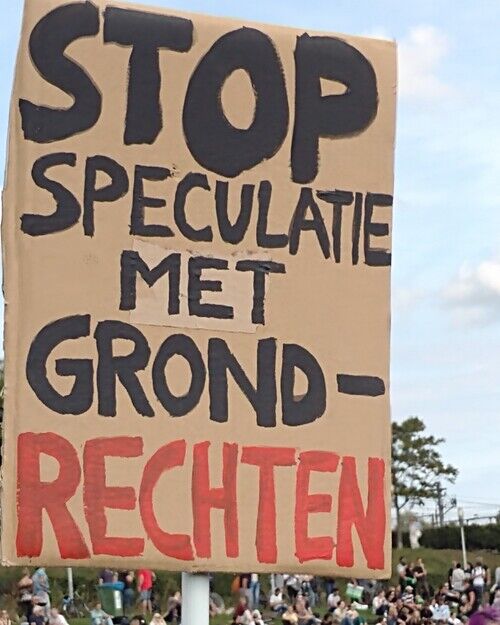 STOP
SPECULATIE
MET
GROND-
RECHTEN